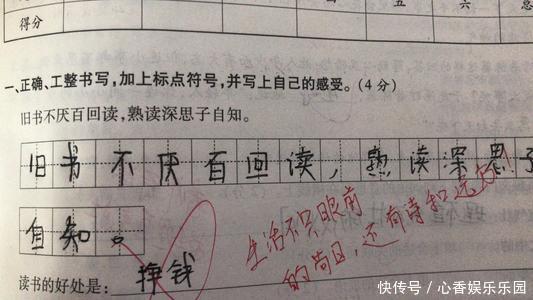 五 六 总
得分
一、正确、工整书写,加上标点符号,并写上自己的感受。(4分)
旧书不厌百回读,熟读深思子自知。
旧书不厌百回读,熟读深思子
自知。
生活不只眼前
的苟且,还有诗和远方!
读书的好处是: 挣钱
快传号/心香娱乐乐园